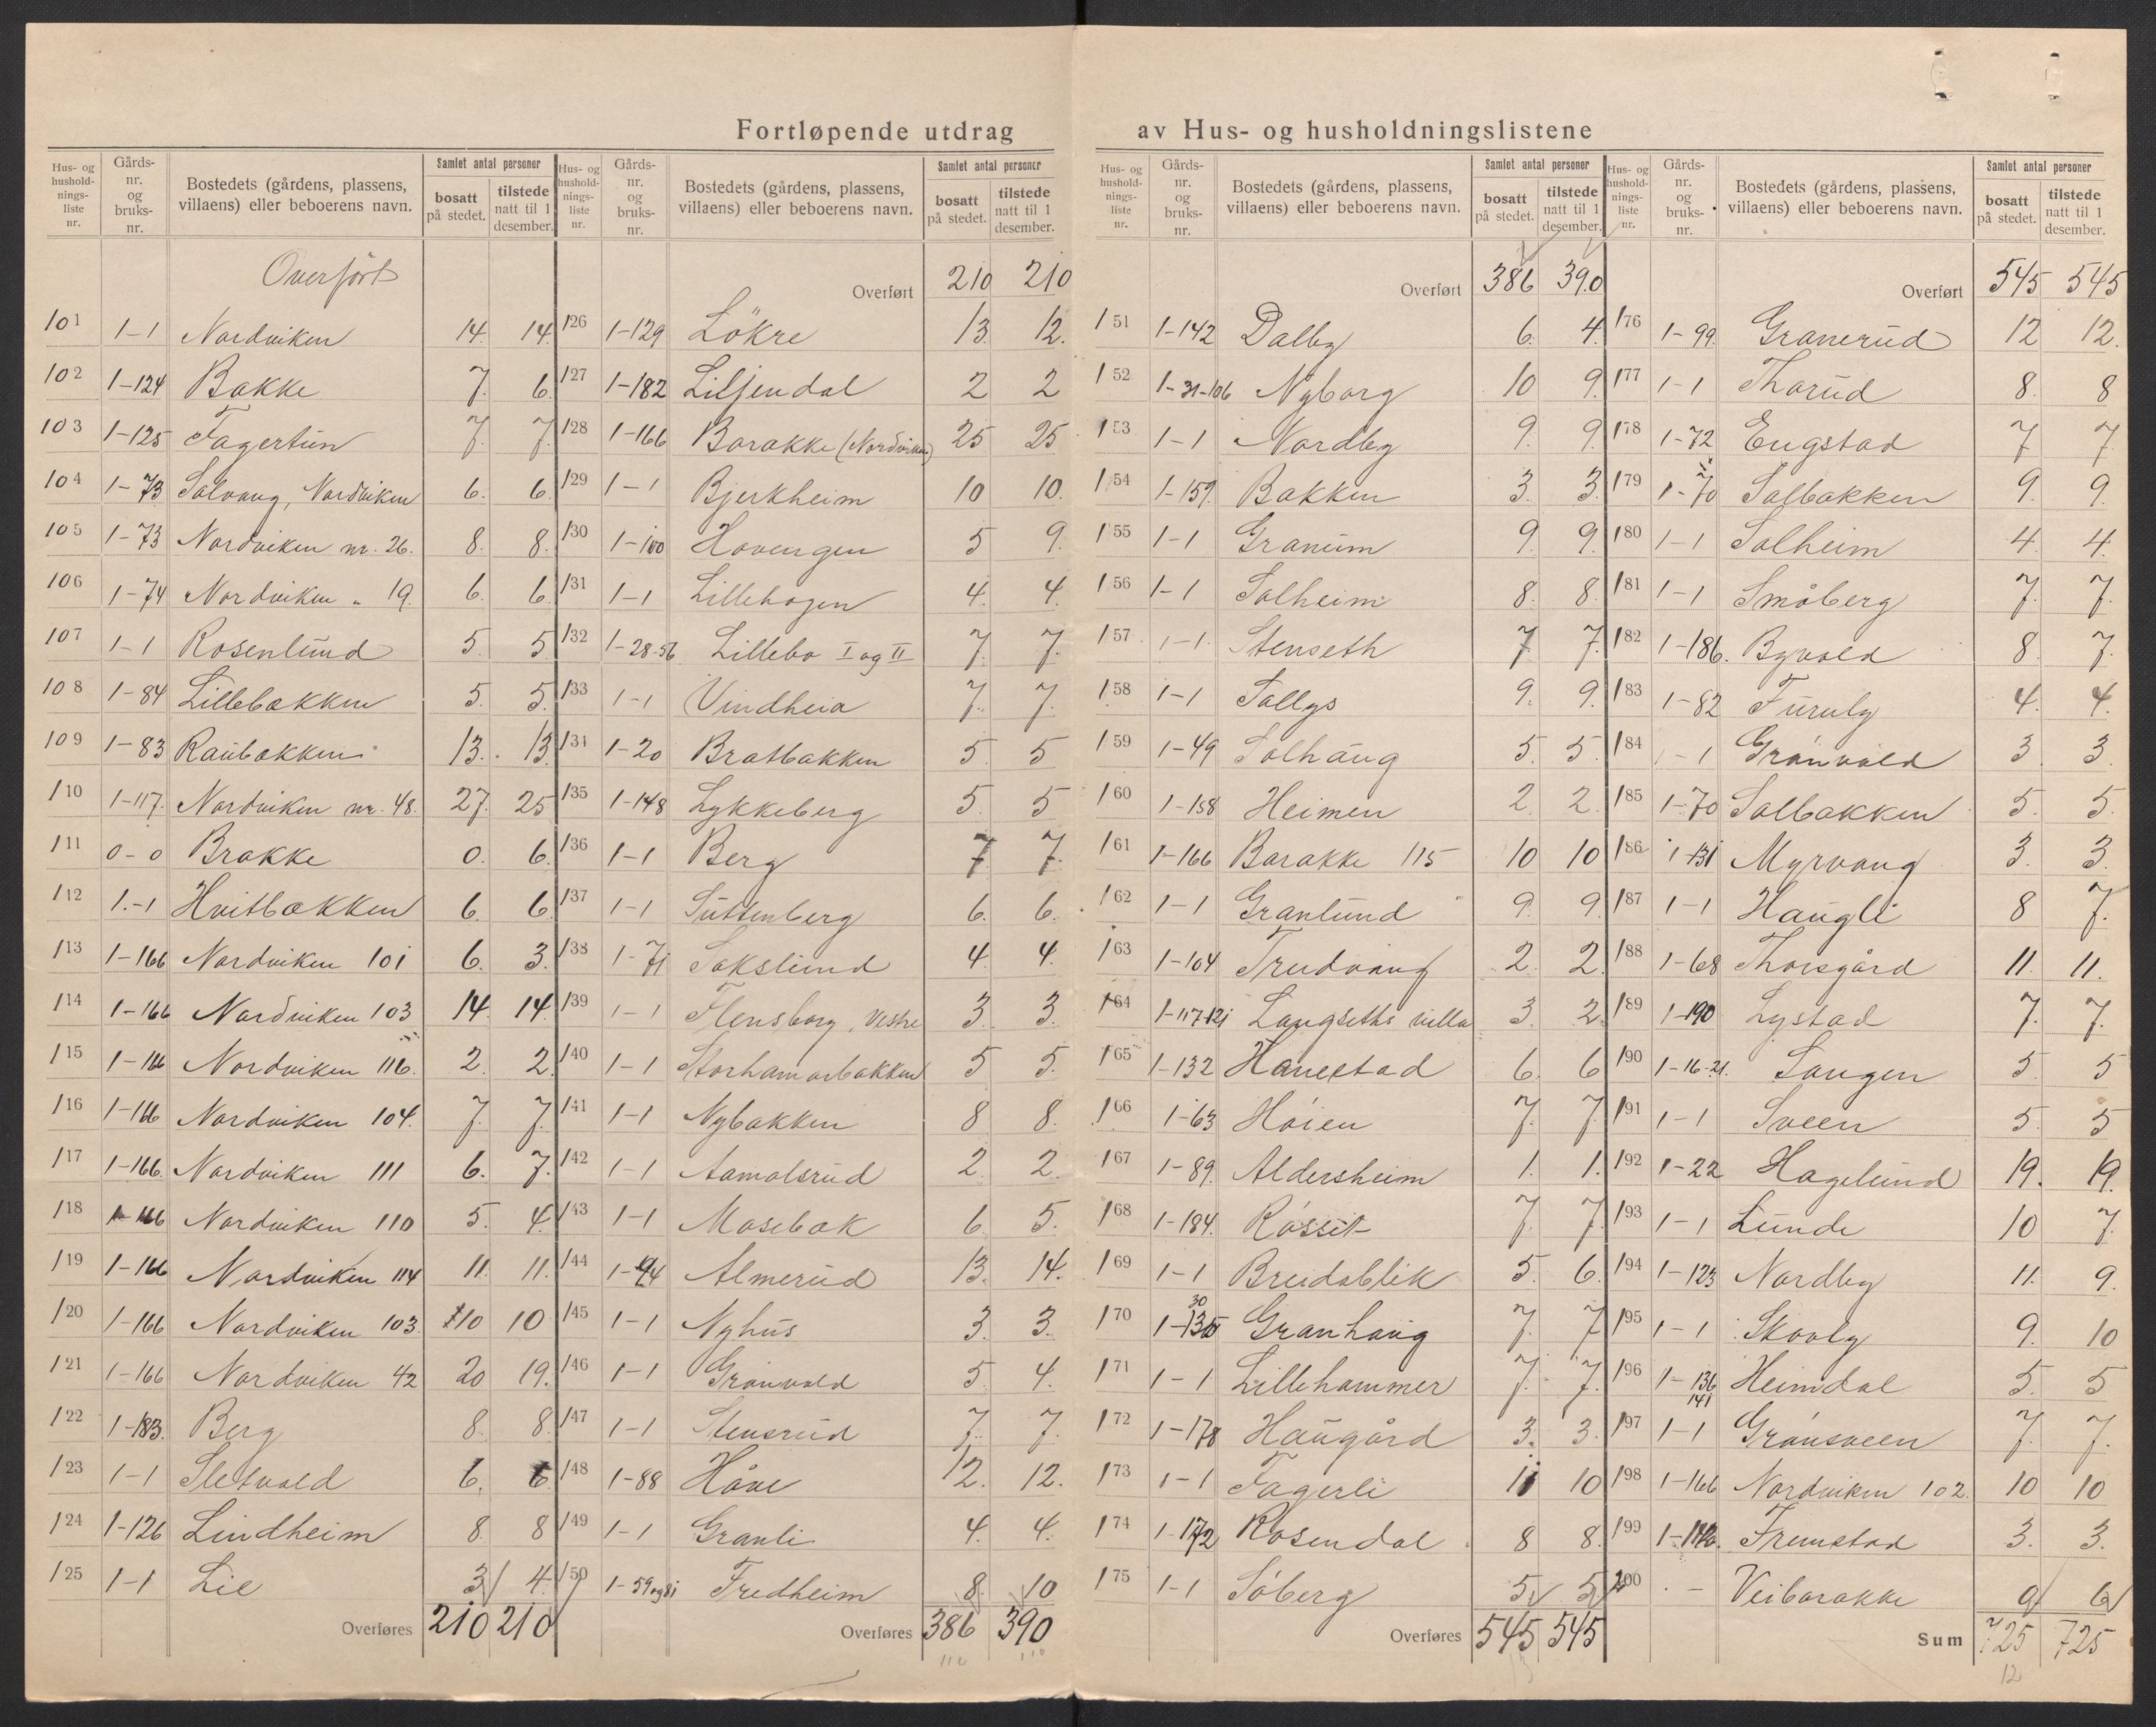 Fortløpende utdrag av Hus- og husholdningslistene
Hus- og hushold-nings-liste nr. Gårds-nr. og bruks-nr. Bostedets (gårdens, plassens, villaens) eller beboerens navn. Samlet antal personer bosatt på stedet. tilstede natt til 1 desember.
Overført
101 1-1 Nordviken 14. 14.
102 1-124 Bakke 7. 6.
103 1-125 Fagertun 7. 7.
104 1-73 Solvang, Nordviken 6. 6.
105 1-73 Nordviken nr. 26. 8. 8.
106 1-74 Nordviken „ 19. 6. 6.
107 1-1 Rosenlund 5. 5
108 1-84 Lillebakken 5. 5.
109 1-83 Raubakken 13. 13.
110 1-117. Nordviken nr. 48. 27. 25
111 0-0 Brakke 0. 6.
112 1-1 Hvitbakken 6. 6.
113 1-166 Nordviken 101 6. 3.
114 1-166 Nordviken 103 14. 14.
115 1-166 Nordviken 116. 2. 2.
116 1-166 Nordviken 104. 7. 7.
117 1-166. Nordviken 111 6. 7.
118 1-166 Nordviken 110 5. 4.
119 1-166 Nordviken 114 11. 11.
120 1-166 Nordviken 103. 10 10
121 1-166 Nordviken 42 20 19.
122 1-183. Berg 8. 8.
123 1-1 Sletvold 6. 6
124 1-126 Lindheim 8. 8
125 1-1 Lie 3 4.
Overføres 210 210
Hus- og hushold-nings-liste nr. Gårds-nr. og bruks-nr. Bostedets (gårdens, plassens, villaens) eller beboerens navn. Samlet antal personer bosatt på stedet. tilstede natt til 1 desember.
Overført 210 210
126 1-129 Lökre 13 12.
127 1-182 Liljendal 2 2
128 1-166 Barakke (Nordviken) 25 25
129 1-1 Bjerkheim 10 10.
130 1-100 Hovengen 5 9.
131 1-1 Lillehagen 4. 4.
132 1-28-56 Lillebo I og II 7. 7.
133 1-1 Vindheia 7. 7.
134 1-20 Bratbakken 5. 5
135 1-148 Lykkeberg 5. 5
136 1-1 Berg 7. 7.
137 1-1 Suttenberg 6. 6.
138 1-71 Sakslund 4. 4.
139 1-1 Flensborg, Vestre 3. 3.
140 1-1 Storhamarbakken 5 5.
141 1-1 Nybakken 8 8.
142 1-1 Aamotsrud 2. 2.
143 1-1 Mosebak 6. 5.
144 1-94 Almerud 13. 14.
145 1-1 Nyhus 3. 3.
146 1-1 Grönvold 5 4.
147 1-1 Stensrud 7. 7.
148 1-88 Håve 12. 12.
149 1-1 Granli 4. 4.
150 1-59 og 81 Fredheim 8. 10
Overføres 386 390
Hus- og hushold-nings-liste nr. Gårds-nr. og bruks-nr. Bostedets (gårdens, plassens, villaens) eller beboerens navn. Samlet antal personer bosatt på stedet. tilstede natt til 1 desember.
Overført 386 390
151 1-142 Dalby 6. 4.
152 1-31-106 Nyborg 10 9.
153 1-1 Nordby 9. 9.
154 1-159. Bakken 3. 3.
155 1-1 Granum 9. 9.
156 1-1 Solheim 8. 8.
157 1-1. Stenseth 7 7.
158 1-1 Sollys 9. 9.
159 1-49 Solhaug 5. 5.
160 1-158 Heimen 2 2.
161 1-166 Barakke 115 10 10
162 1-1 Granlund 9. 9.
163 1-104 Trudvang 2. 2.
164 1-117-121 Langseths villa 3. 2.
165 1-132 Hanestad 6. 6
166 1-63 Höien 7. 7.
167 1-89. Aldersheim 1. 1.
168 1-184. Rösset 7. 7.
169 1-1 Breidablik 5. 6.
170 Granhaug 7. 7
171 1-1 Lillehammer 7. 7.
172 1-178 Haugård 3. 3.
173 1-1 Fagerli 11 10
174 1-172 Rosendal 8 8.
175 1-1 Söberg 5. 5.
Overføres 545 545
Hus- og hushold-nings-liste nr. Gårds-nr. og bruks-nr. Bostedets (gårdens, plassens, villaens) eller beboerens navn. Samlet antal personer bosatt på stedet. tilstede natt til 1 desember.
Overført 545 545
176 1-99. Granerud 12 12.
177 1-1 Thorud 8. 8
178 1-72 Engstad 7 7.
179 1-70 Solbakken 9. 9.
180 1-1 Solheim 4. 4.
181 1-1 Småberg 7. 7.
182 1-186. Byvold 8 7.
183 1-82 Furuly 4. 4.
184 1-1 Grönvold 3. 3.
185 1-70 Solbakken 5. 5.
186 1-131 Myrvang 3. 3.
187 1-1 Haugli 8 7.
188 1-68 Thorsgård 11. 11.
189 1-190 Lystad 7. 7.
190 1-16-21. Sangen 5. 5
191 1-1 Sveen 5. 5
192 1-22 Hagelund 19. 19.
193 1-1 Lunde 10 7.
194 1-123 Nordby 11. 9.
195 1-1 Skovly 9. 10
196 1-136 141 Heimdal 5. 5
197 1-1 Grönsveen 7. 7.
198 1-166 Nordviken 102. 10 10
199 Fremstad 3. 3.
200 - Veibarakke 0 6
Sum 725 725
12